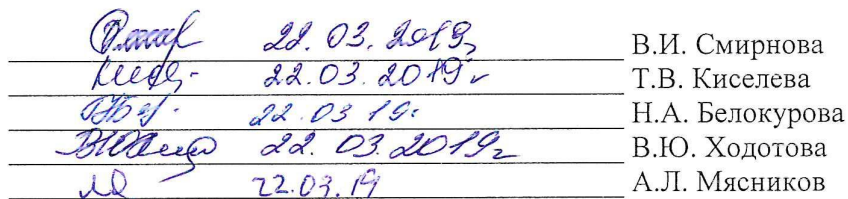 22.03.2019г В.И. Смирнова
22.03.2019г Т.В. Киселева
22.03 19г Н.А. Белокурова
22.03.2019г В.Ю. Ходотова
22.03.19 А.Л. Мясников